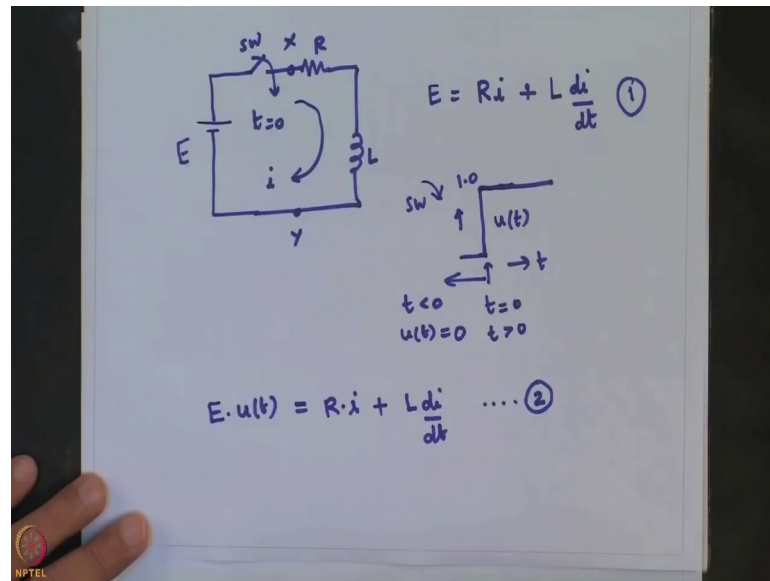 SW X R
t=0
E
i
L
Y
E = Ri + L di/dt ①
SW 1.0
u(t)
→ t
t<0 t=0
u(t)=0 t>0
E·u(t) = R·i + L di/dt .... ②
NPTEL